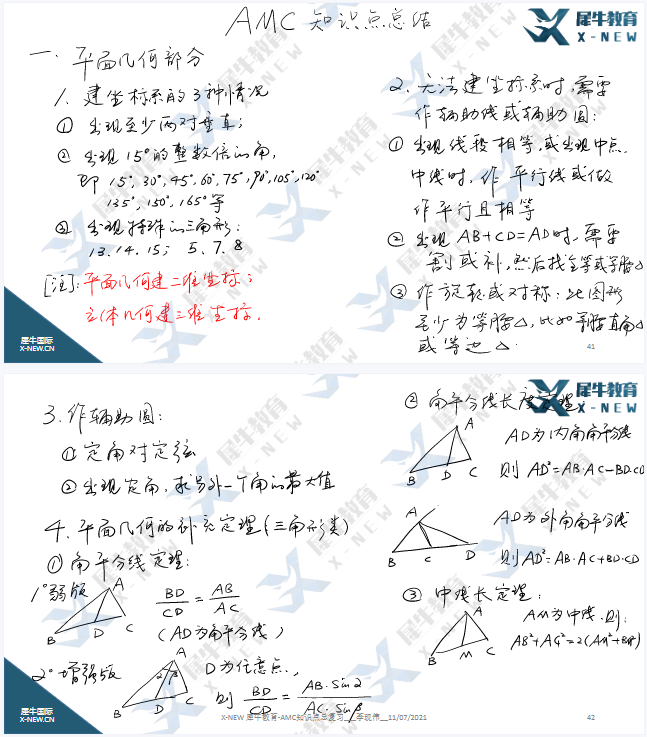 AMC 知识点总结
犀牛教育
X-NEW
一. 平面几何部分
1. 建坐标系的3种情况
① 出现至少两对垂直;
② 出现15°的整数倍的角,
即 15°, 30°, 45°, 60°, 75°, 90°, 105°, 120°
135°, 150°, 165°等
③ 出现特殊的三角形:
13. 14. 15; 5. 7. 8
[注]: 平面几何建二维坐标;
立体几何建三维坐标.
2. 无法建坐标系时,需要
作辅助线或辅助圆:
① 出现线段相等,或出现中点.
中线时,作平行线或做
作平行且相等
② 出现 AB+CD=AD时,需要
割或补,然后找全等或等腰△
③ 作旋转或对称: 此图形
至少为等腰△,比如等腰直角△
或等边△.
犀牛国际
X-NEW.CN
41
犀牛教育
X-NEW
3. 作辅助圆:
① 定角对定弦
② 出现定角,求另外一个角的最大值
4. 平面几何的补充定理(三角形类)
① 角平分线定理:
1° 弱版
A
B
D
C
BD/CD = AB/AC
(AD为角平分线)
2° 增强版
A
α
β
B
D
C
D为任意点,
则 BD/CD = AB·sinα/AC·sinβ
② 角平分线长度定理:
A
B
D
C
AD为内角角平分线
则 AD²=AB·AC-BD·CD
A
B
C
D
AD为外角角平分线
则AD²=-AB·AC+BD·CD
③ 中线长定理:
A
B
M
C
AM为中线.则:
AB²+AC²=2(AM²+BM²)
犀牛国际
X-NEW.CN
X-NEW 犀牛教育-AMC知识点总复习__李现伟__11/07/2021
42